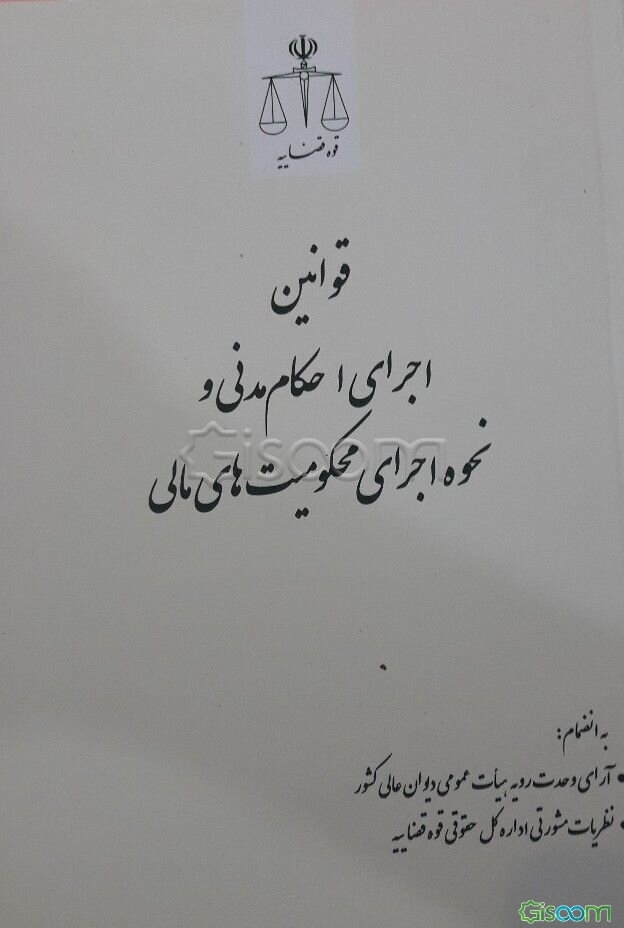 قوه قضاییه
قوانین
اجرای احکام مدنی و
نحوه اجرای محکومیت های مالی
Gisoom
به انضمام:
• آرای وحدت رویه هیأت عمومی دیوان عالی کشور
• نظریات مشورتی اداره کل حقوقی قوه قضاییه
Gisoom